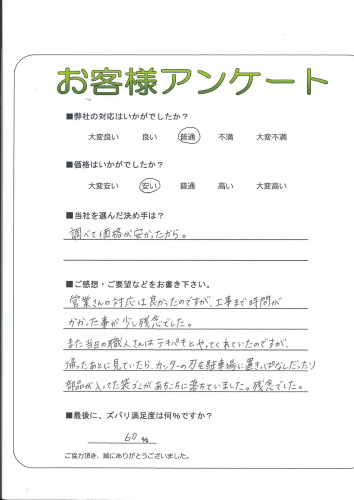 お客様アンケート
■弊社の対応はいかがでしたか？
大変良い 良い 普通 不満 大変不満
■価格はいかがでしたか？
大変安い 安い 普通 高い 大変高い
■当社を選んだ決め手は？
調べて価格が安かったから。
■ご感想・ご要望などをお書き下さい。
営業さんの対応は良かったのですが、工事まで時間が
かかった事が少し残念でした。
また当日の職人さんはテキパキとやってくれていたのですが、
帰ったあとに見ていたら、カッターの刃を駐車場に置きっぱなしだったり
部品が入ってた袋ゴミがあちこちに落ちていました。残念でした。
■最後に、ズバリ満足度は何％ですか？
60 ％
ご協力頂き、誠にありがとうございました。